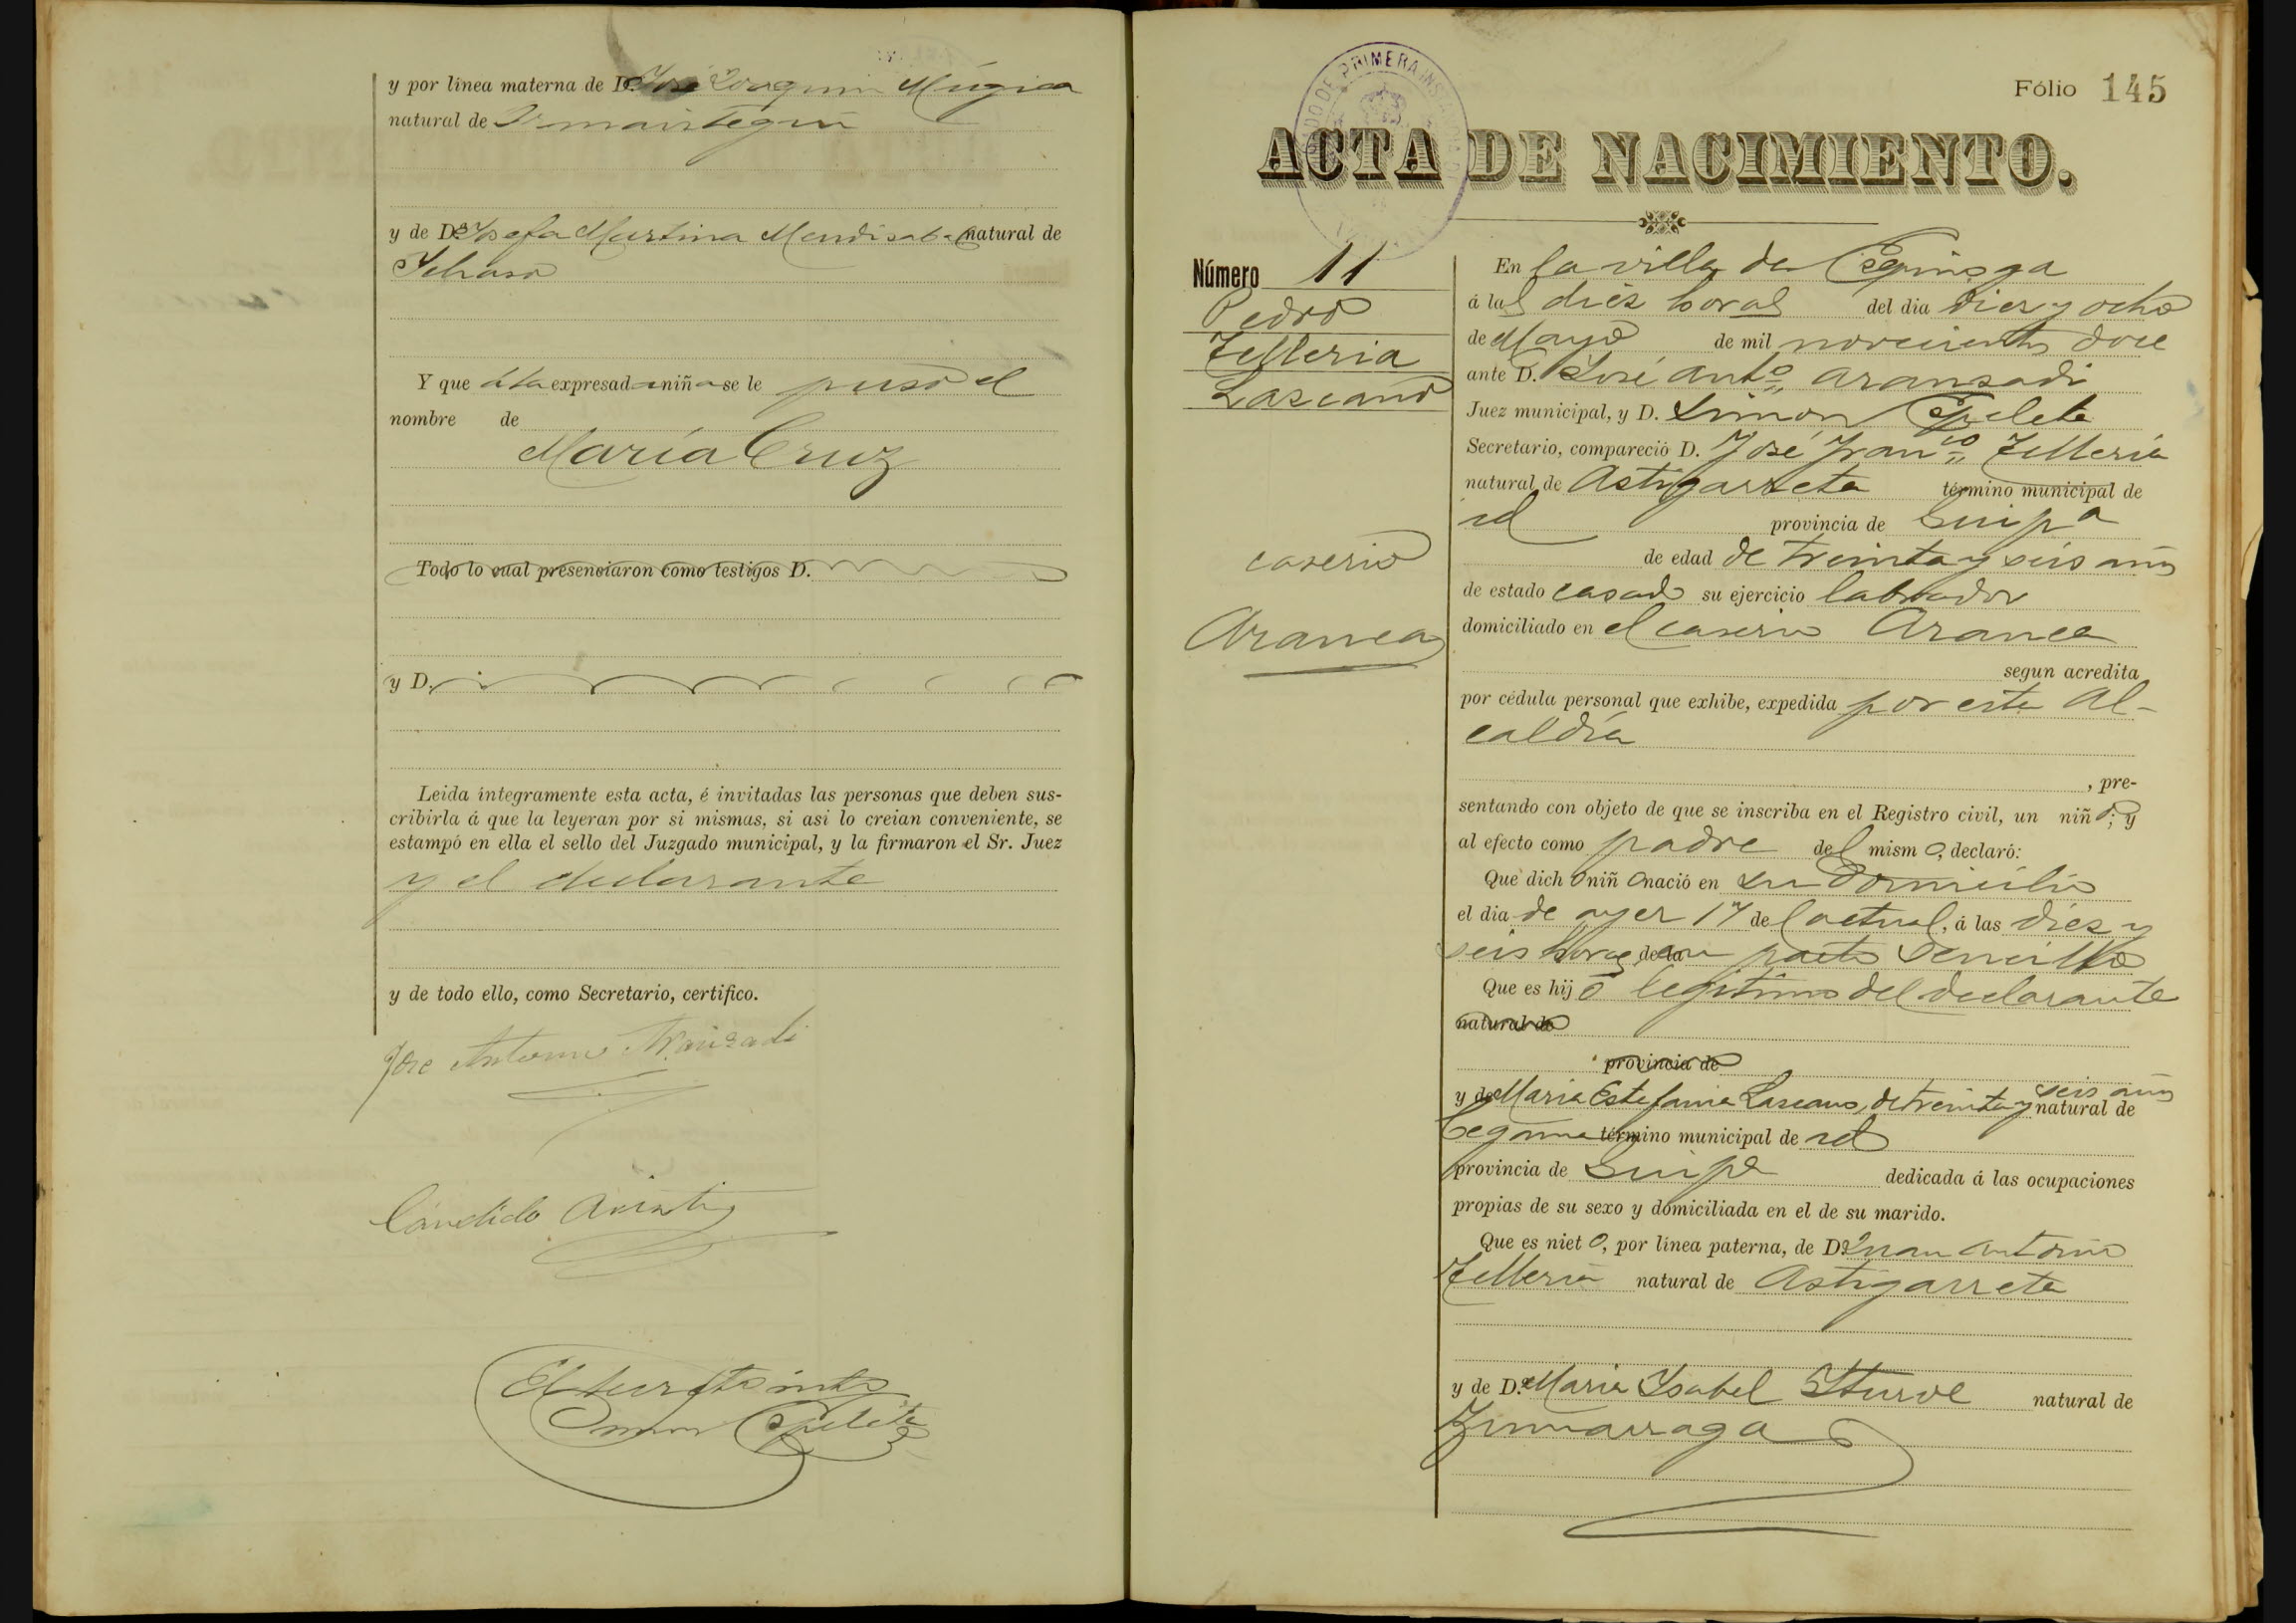 y por línea materna de D. José Joaquin Múgica
natural de Ormaiztegui
y de D.ª Josefa Martina Mendizabal natural de
Ichaso
Y que á la expresada niña se le puso el
nombre de
María Cruz
Todo lo cual presenciaron como testigos D.
y D.
Leida íntegramente esta acta, é invitadas las personas que deben sus-
cribirla á que la leyeran por si mismas, si asi lo creian conveniente, se
estampó en ella el sello del Juzgado municipal, y la firmaron el Sr. Juez
y el declarante
y de todo ello, como Secretario, certifico.
Jose Antonio Aranzadi
Cándido
El Secret.
Simon
Fólio 145
PRIMERA
ACTA DE NACIMIENTO.
Número 11
Pedro
Telleria
Lazcano
caserio
Aranea
En la villa de Ezquioga
á las diéz horas del dia diez y ocho
de Mayo de mil novecientos doce
ante D. José Antº Aranzadi
Juez municipal, y D. Simon
Secretario, compareció D. José Franco Telleria
natural de Astigarreta término municipal de
id provincia de Guipa
de edad de treinta y seis años
de estado casado su ejercicio labrador
domiciliado en el caserio Aranea
segun acredita
por cédula personal que exhibe, expedida por esta Al-
caldía
, pre-
sentando con objeto de que se inscriba en el Registro civil, un niño; y
al efecto como padre del mismo, declaró:
Que dicho niño nació en su domicilio
el dia de ayer 17 del actual, á las diéz y
seis horas de la en parto sencillo
Que es hijo legitimo del declarante
natural de
provincia de
y de Maria Estefania Lazcano, de treinta y seis años natural de
Cegama término municipal de id
provincia de Guipa dedicada á las ocupaciones
propias de su sexo y domiciliada en el de su marido.
Que es nieto, por línea paterna, de D. Juan Antonio
Telleria natural de Astigarreta
y de D.ª Maria Ysabel Yturve natural de
Zumarraga